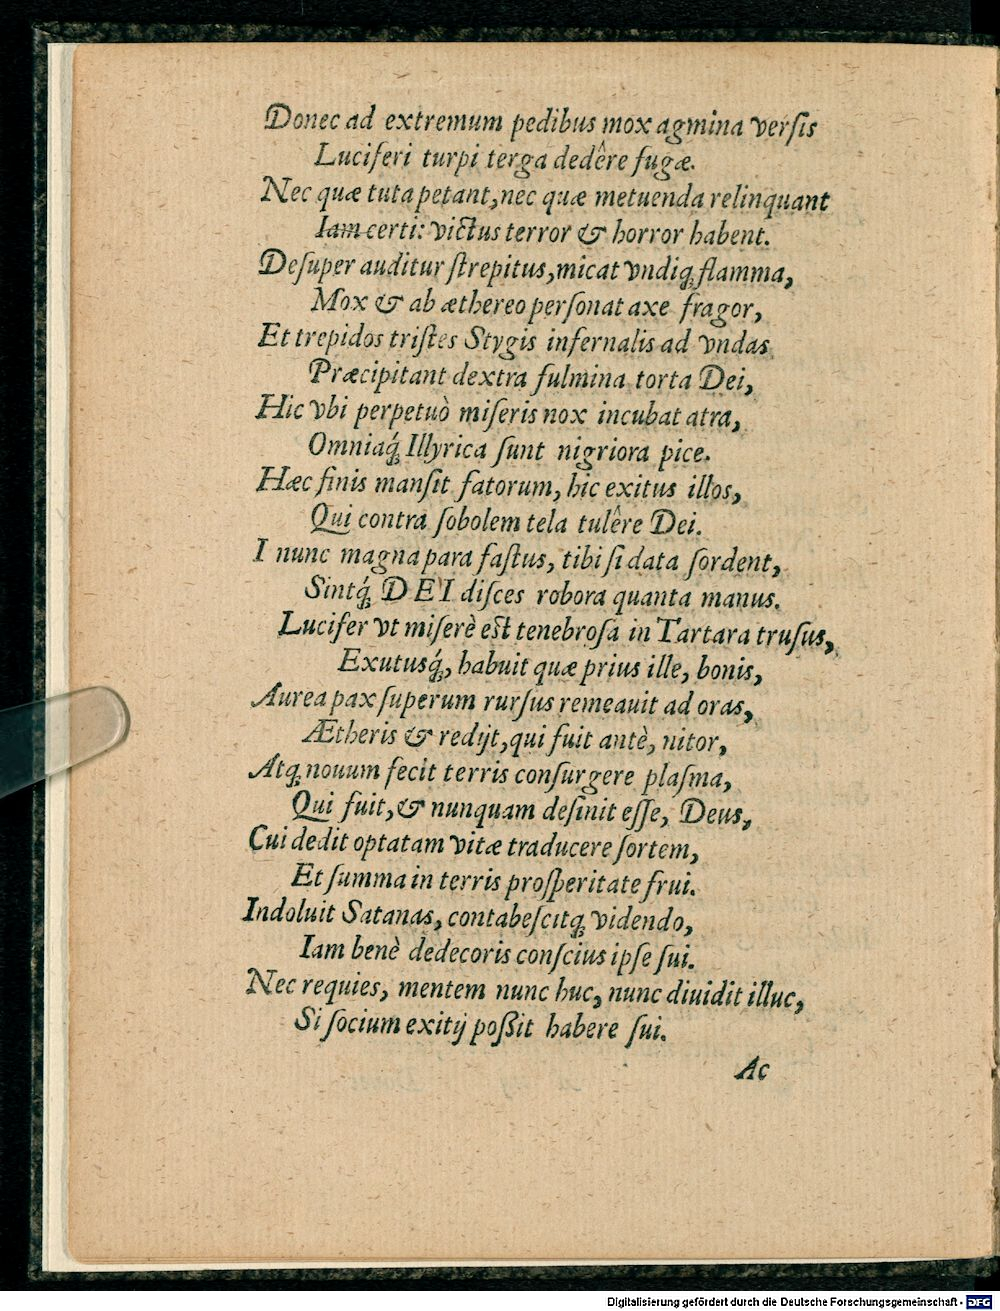 Donec ad extremum pedibus mox agmina verſis
Luciferi turpi terga dedêre fugæ.
Nec quæ tuta petant, nec quæ metuenda relinquant
Iam certi: victus terror & horror habent.
Deſuper auditur ſtrepitus, micat vndiq́; flamma,
Mox & ab æthereo perſonat axe fragor,
Et trepidos triſtes Stygis infernalis ad vndas
Præcipitant dextra fulmina torta Dei,
Hic vbi perpetuò miſeris nox incubat atra,
Omniaq́; Illyrica ſunt nigriora pice.
Hæc finis manſit fatorum, hic exitus illos,
Qui contra ſobolem tela tulêre Dei.
I nunc magna para faſtus, tibi ſi data ſordent,
Sintq́; DEI diſces robora quanta manus.
Lucifer vt miſerè est tenebroſa in Tartara truſus,
Exutusq́;, habuit quæ prius ille, bonis,
Aurea pax ſuperum rurſus remeauit ad oras,
Ætheris & redijt, qui fuit antè, nitor,
Atq; nouum fecit terris conſurgere plaſma,
Qui fuit, & nunquam deſinit eſſe, Deus,
Cui dedit optatam vitæ traducere ſortem,
Et ſumma in terris proſperitate frui.
Indoluit Satanas, contabeſcitq; videndo,
Iam benè dedecoris conſcius ipſe ſui.
Nec requies, mentem nunc huc, nunc diuidit illuc,
Si ſocium exitij poßit habere ſui.
Ac
Digitalisierung gefördert durch die Deutsche Forschungsgemeinschaft - DFG